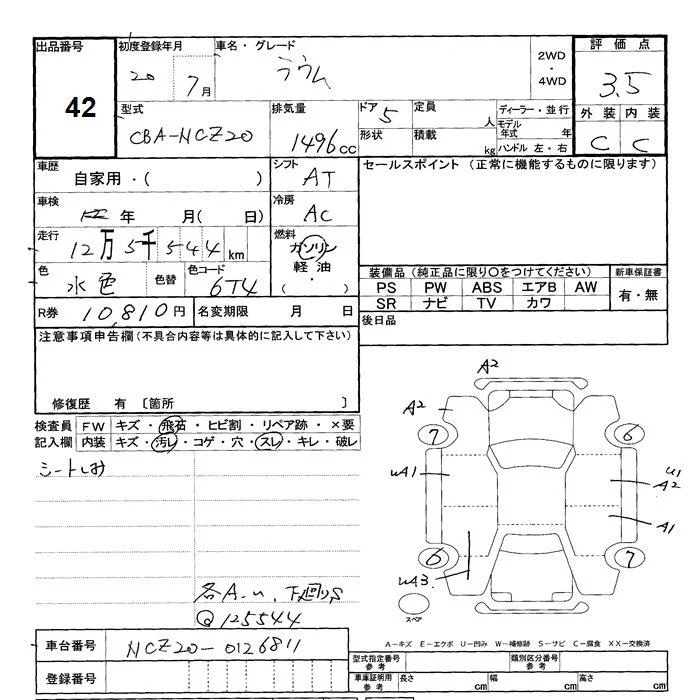 出品番号 42
初度登録年月 20 7月
車名・グレード ラウム
2WD・4WD
評価点 3.5
外装 C 内装 C
型式 CBA-NCZ20
排気量 1496cc
ドア 5
形状
定員 人
積載 kg
ディーラー・並行
モデル年式 年
ハンドル 左・右
車歴 自家用・( )
シフト AT
セールスポイント (正常に機能するものに限ります)
車検 年 月( 日)
冷房 AC
走行 12万5千544km
燃料 ガソリン 軽油・( )
色 水色
色替
色コード 6T4
装備品(純正品に限り○をつけてください)
PS PW ABS エアB AW
SR ナビ TV カワ
新車保証書 有・無
R券 10,810円
名変期限 月 日
後日品
注意事項申告欄(不具合内容等は具体的に記入して下さい)
修復歴 有 〔箇所 〕
検査員記入欄
FW キズ・飛石・ヒビ割・リペア跡・×要
内装 キズ・汚レ・コゲ・穴・スレ・キレ・破レ
シートしみ
各A-U、下廻りS
Q125544
A2
A2
7
6
uA1
U1
A2
A1
6
7
uA3
スペア
A-キズ E-エクボ U-凹み W-補修跡 S-サビ C-腐食 XX-交換済
車台番号 NCZ20-0126811
登録番号
型式指定番号 参考
類別区分番号 参考
車庫証明用 参考 長さ cm 幅 cm 高さ cm